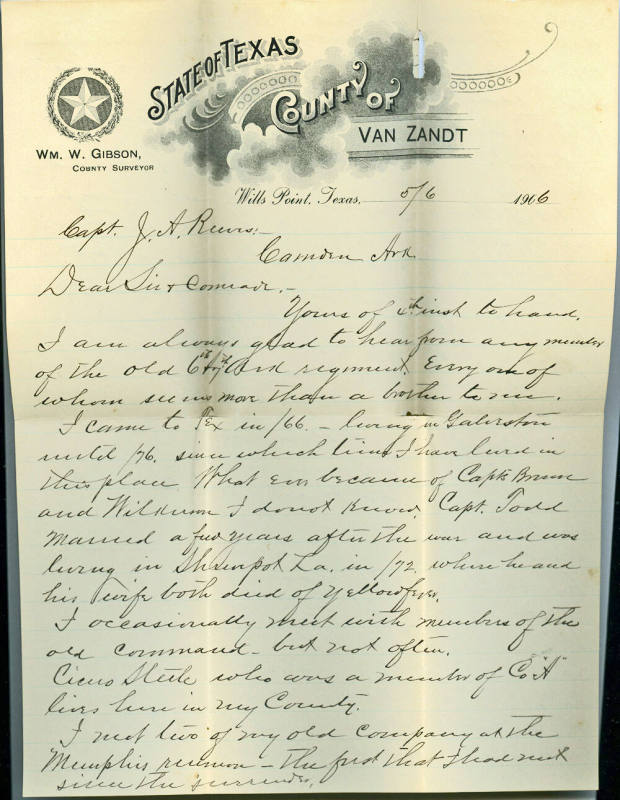 STATE OF TEXAS
COUNTY OF
VAN ZANDT
WM. W. GIBSON,
COUNTY SURVEYOR
Wills Point, Texas, 5/6 1906
Capt. J. A. Reeves:-
Camden Ark.
Dear Sir & Comrade.-
Yours of 4th inst to hand.
I am always glad to hear from any member
of the old 6th & 7th Ark regiment Every one of
whom seems more than a brother to me.
I came to Tex in /66. - living in Galveston
until /76. since which time I have lived in
this place. What ever became of Capts
and I do not know. Capt. Todd
married a few years after the war and was
living in Shrevport La. in /72 where he and
his wife both died of Yellow fever.
I occasionally meet with members of the
old command - but not often.
Cicero Steele who was a member of Co "A"
lives here in my County.
I met two of my old company at the
Memphis reunion - the first that I had met
since the surrender.